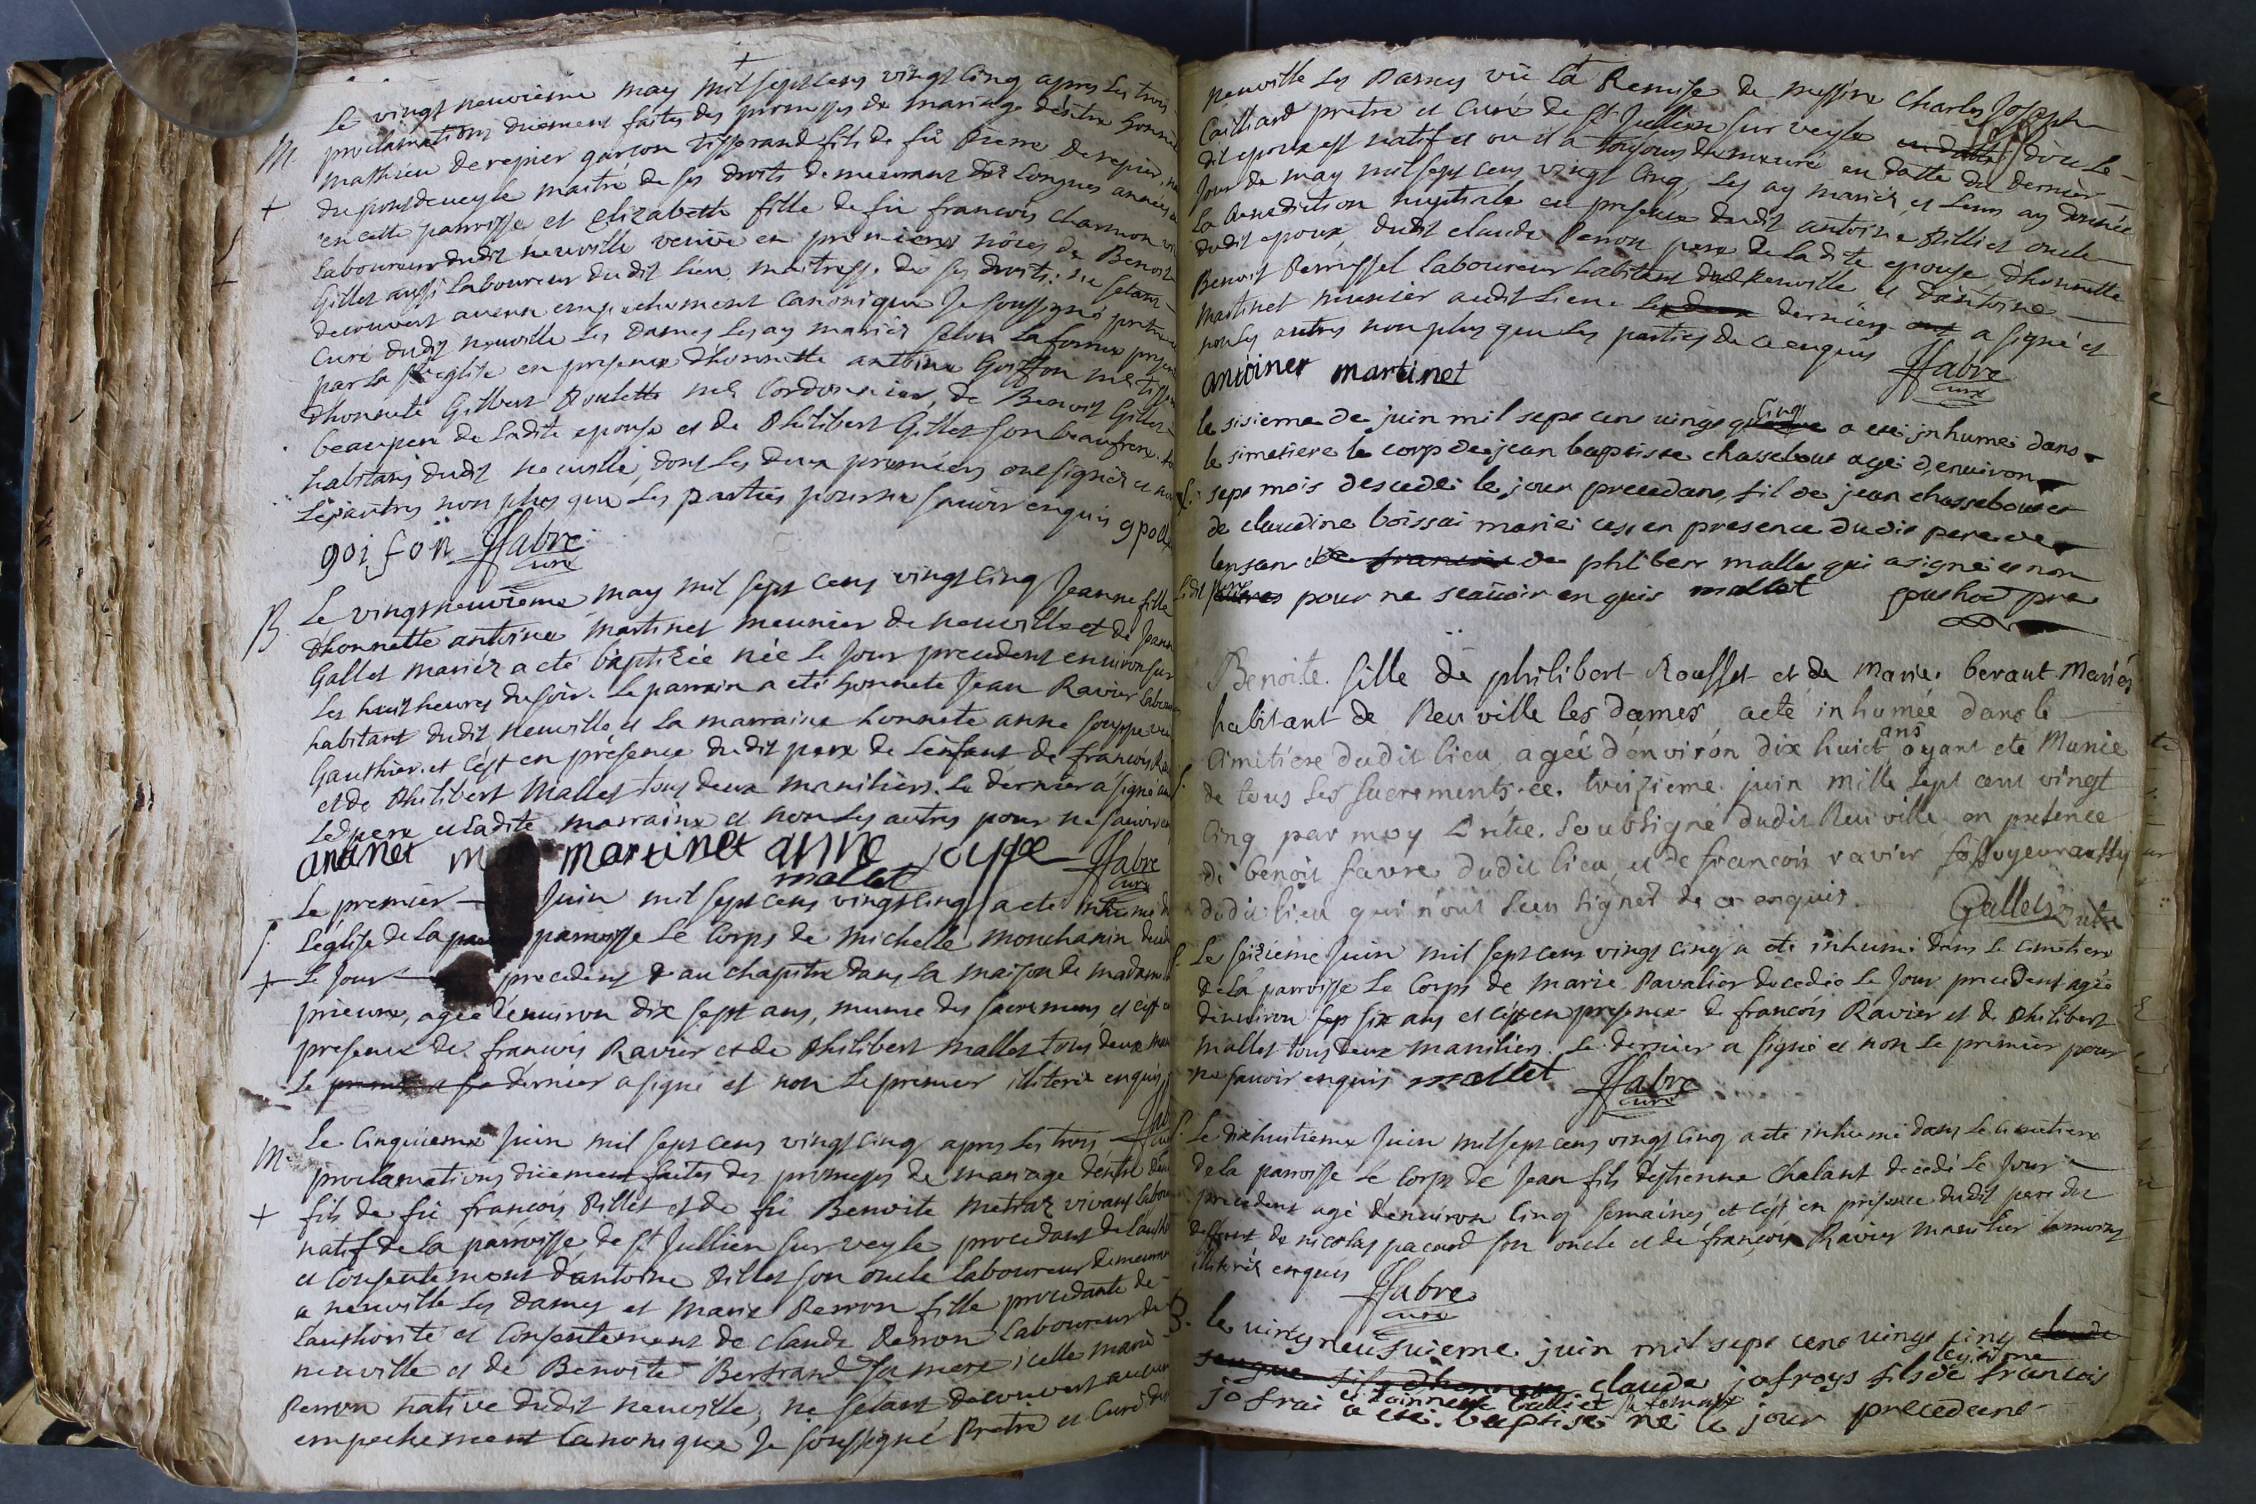 Le vingt neuvième may mil sept cens vingt cinq apres les trois
M. proclamations düement faites des promesses de mariage d'entre honnete
mathieu derepier garcon tisserand fils de fü pierre derepier
du pont de veyle maitre de ses droits demeurant dès longues années
en cette parroisse et Elizabeth fille de fü francois charmon
laboureur dudit neuville veuve en premieres nôces de Benoit
Gillet aussi laboureur dudit lieu maitresse de ses droits: ne setant
decouvert aucun empechement canonique Je soussigné pretre
curé dudit neuville les Dames les ay mariéz selon la forme
par la ste eglise en presence d'honnette antoine Goiffon me
d'honneté Gilbert Poulette me Cordonnier, de Benoit Gillet
beaupere de ladite epouse et de Philibert Gillet son beaufrere
habitans dudit neuville, dont les deux premiers ont signéz et non
les autres non plus que les parties pour ne sauoir enquis
goiffon ffabre
curé
B. Le vingtneuvième may mil sept cens vingt cinq Jeanne fille
d'honnette antoine martinet meunier de neuville et de Jeanne
Gallet mariéz a eté baptizée née le jour precedent environ sur
les huit heures du soir. le parrain a eté honnete Jean Ravier
habitant dudit neuville et la marraine honnete anne souppe
Gauthier. et c'est en présence dudit pere de l'enfant de francois
et de Philibert Mallet tous deux maniliers. le dernier a signé
ledpere et ladite marraine et non les autres pour ne sauoir
martinet anne souppe ffabre
mallet curé
Le premier Juin mil sept cens vingt cinq a eté inhumé
l'église de la parroisse Le Corps de michelle monchanin
Le jour precedent au chapitre dans la maison de madame
prieure, agée d'enuiron dix sept ans, munie des sacremens, et c'est
presence de francois Ravier et de Philibert mallet tous deux
Le dernier a signé et non le premier illiteré enquis
M. Le Cinquieme Juin mil sept cens vingt cinq apres les trois
proclamations düement faites des promesses de mariage d'entre
fils de fü francois Pillet et de fü Benoite metraz vivans
natif de la parroisse de St Jullien sur veyle procedant de
et consentement d'antoine Pillet son oncle laboureur demeurant
a neuville les Dames et marie Perron fille procedante de
lauthorité et consentement de claude Perron laboureur de
neuville et de Benoite Bertrand sa mere icelle marie
Perron native dudit neuville, ne setant decouvert aucun
empechement canonique Je soussigné Pretre et Curé
neuville les Dames vü la Remise de messire charles Joseph
Cailliard pretre et Curé de St Jullien sur veyle d'ou le
dit epoux est natif et ou il a toujours demeuré en datte du dernier
jour de may mil sept cens vingt cinq, les ay mariéz et leur ay donnée
la benediction nuptiale en presence dudit antoine Pillet oncle
dudit epoux, dudit claude Perron pere de ladite epouse, d'honnette
Benoit Perrussel laboureur habitant dud neuville et d'antoine
martinet munier audit lieu. dernier a signé et
non les autres non plus que les parties de ce enquis
antoiner martinet ffabre
curé
le sisieme de juin mil sept cent vingt cinq a eté jnhumé dans
le simetiere le corp de jean baptiste chassebout agé d'enuiron
sept mois descedé le jour precedant, fil de jean chassebout et
de claudine boissai mariéz cest en presence dudit pere de
lensan de phliber mallet qui a signé et non
ledit pere pour ne scauoir enquis mallet
Benoite fille de philibert Rousset et de Marie beraut Mariés
habitant de Neuville les dames a eté inhumée dans le
cimetiere dudit lieu agée d'environ dix huict ans ayant eté Munie
de tous ses sacrements ce. treizieme juin mille sept cent vingt
cinq par moy Pretre. Soubsigné dudit Neuville en presence
de benoit favre dudit lieu, et de francois ravier fossoyeur aussy
dudit lieu qui n'ont sceu signer de ce enquis. Gallet pretre
Le seizieme Juin mil sept cens vingt cinq a eté inhumé dans le cimetiere
de la parroisse Le Corps de marie Pavalier decedée Le Jour precedent agée
d'environ six ans et c'est en presence de francois Ravier et de Philibert
mallet tous deux maniliers. Le dernier a signé et non le premier pour
ne sauoir enquis mallet ffabre
curé
Le dixhuitieme Juin mil sept cens vingt cinq a eté inhumé dans le cimetiere
de la parroisse Le Corps de Jean fils d'estienne Chalant decedé Le Jour
precedent agé d'enuiron Cinq semaines et c'est en présence dudit pere du
deffunt de nicolas pacard son oncle et de francois Ravier manilier
illiteréz enquis ffabre
curé
B. le vintgneufuieme juin mil sept cent vingt cinq
claude jofroys fils legitime de francois
jofrai
a eté baptisé né le jour precedent